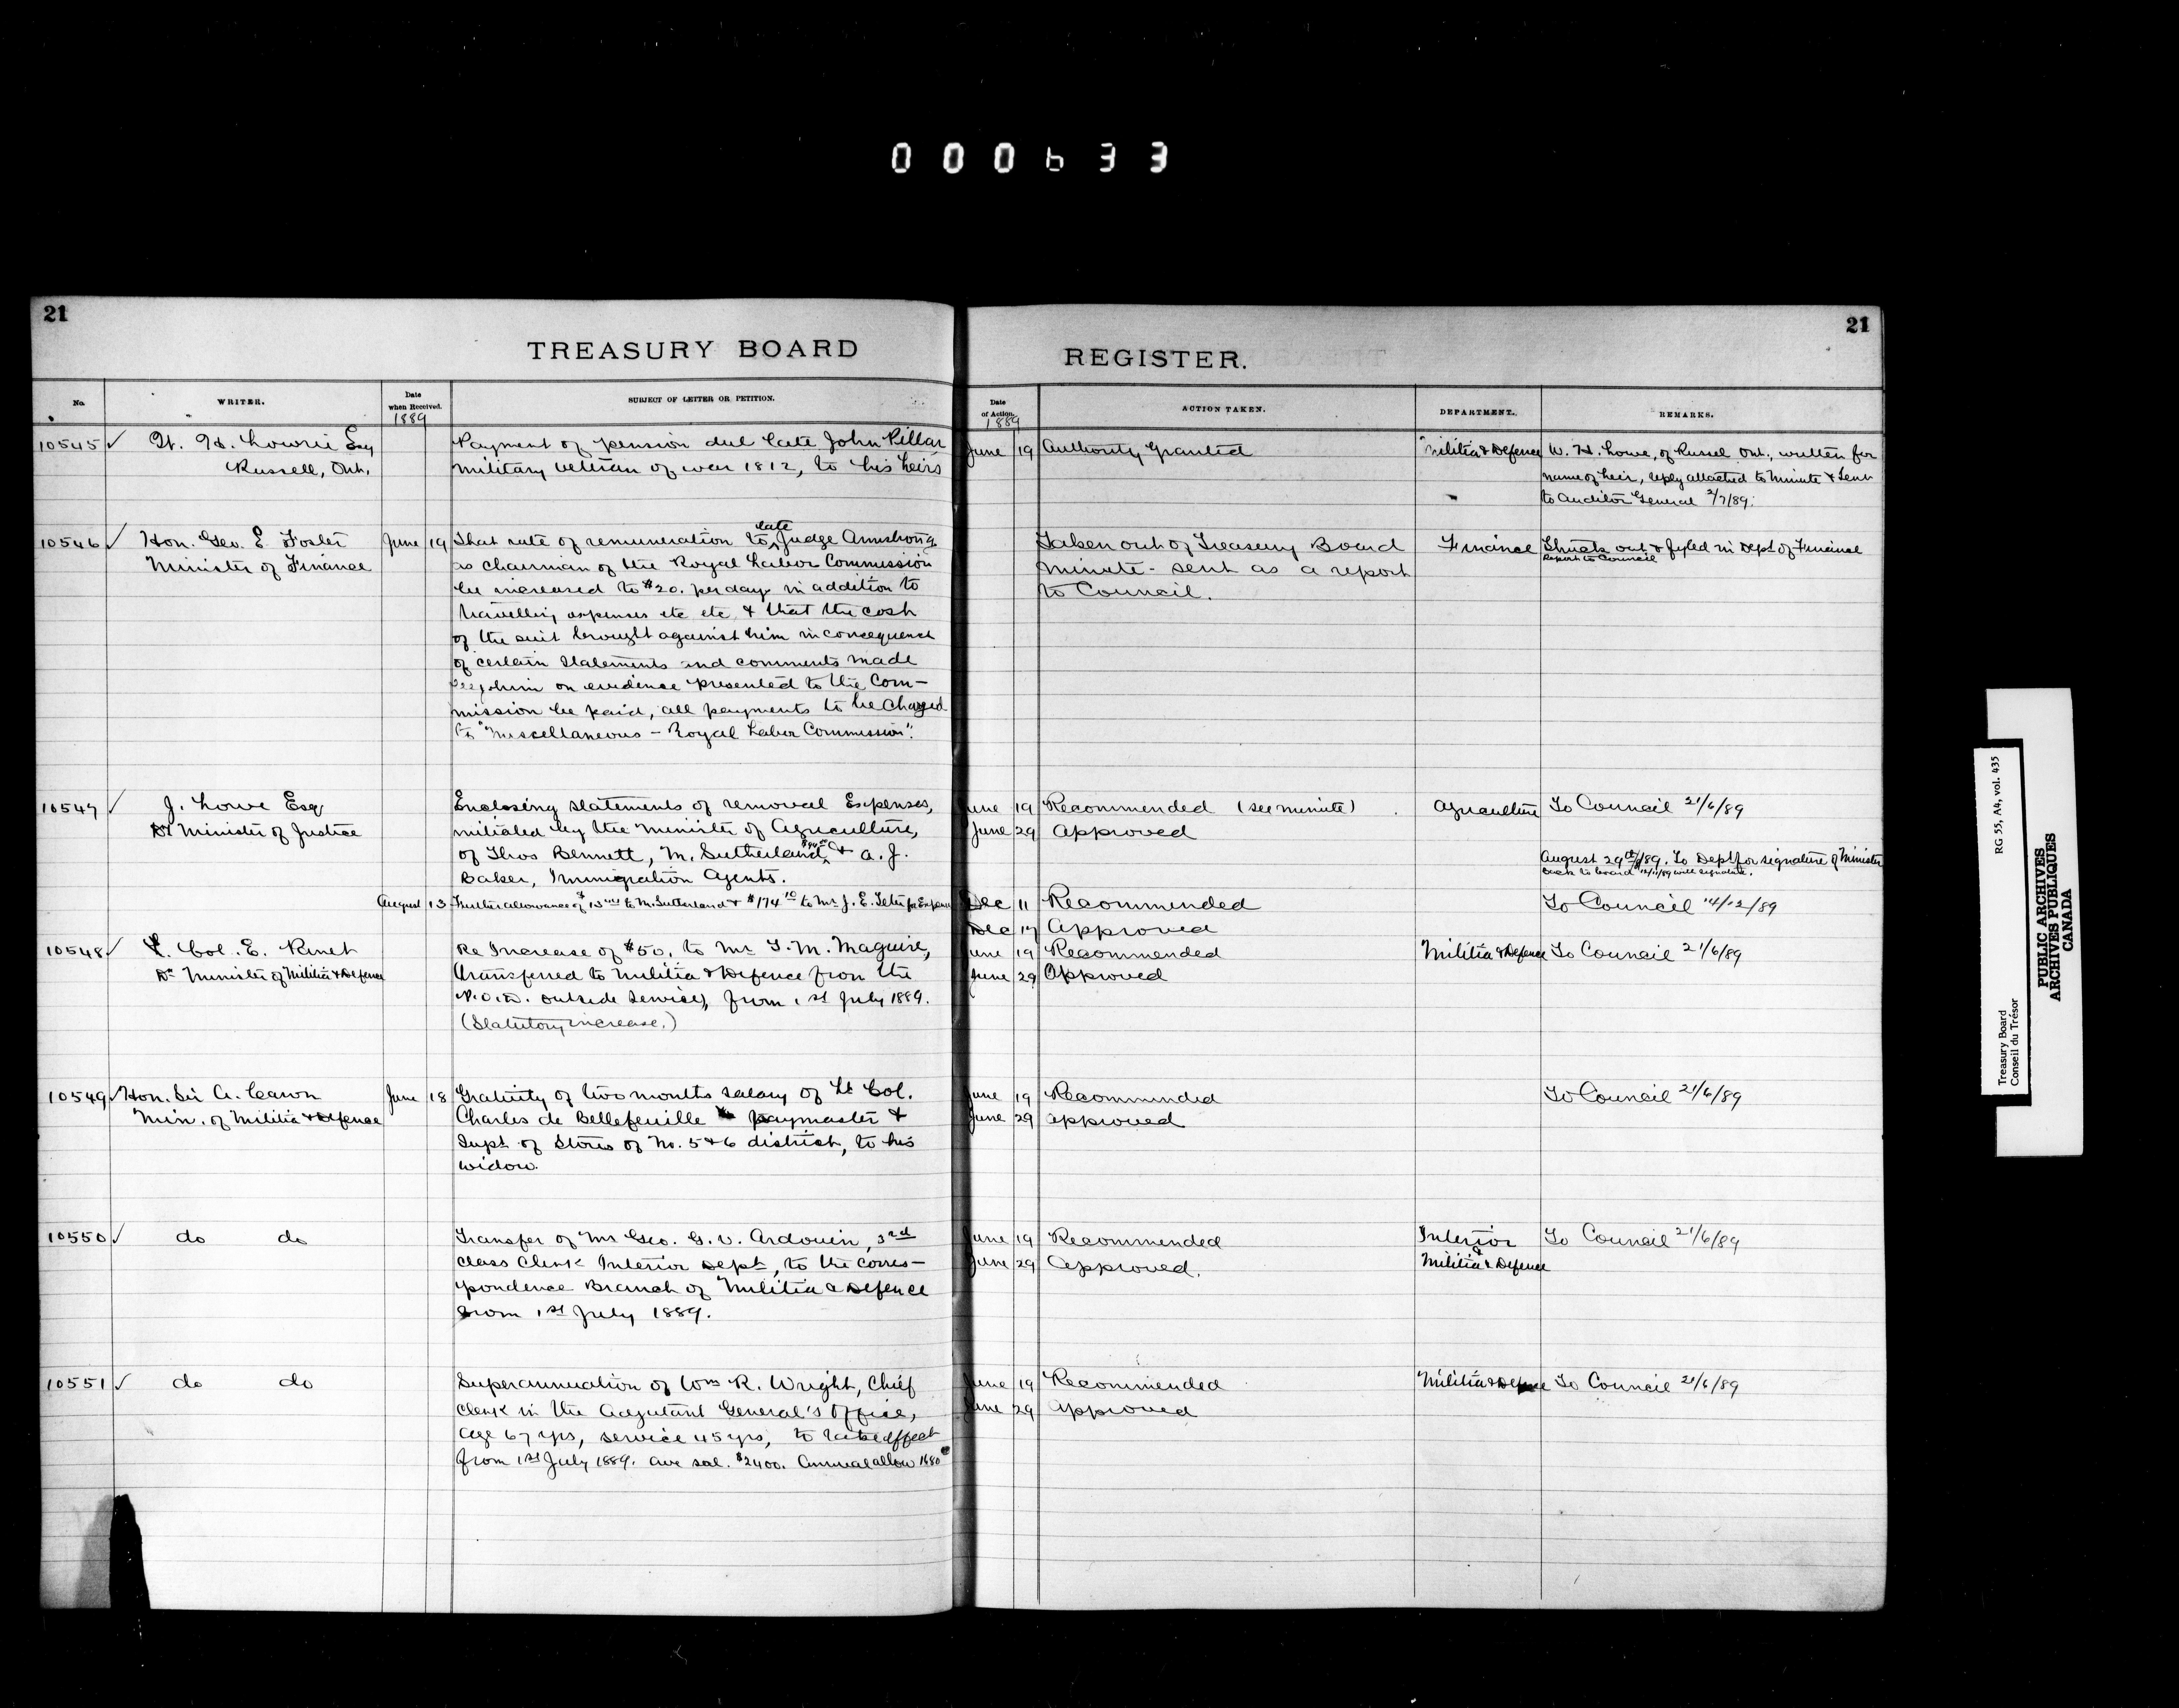 000633
21
21
TREASURY BOARD
REGISTER.
No.
WRITER.
Date when Received.
1889
SUBJECT OF LETTER OR PETITION.
Date of Action.
1889
ACTION TAKEN.
DEPARTMENT.
REMARKS.
10545 ✓
W. H. Lowrie Esq
Russell, Ont.
Payment of pension due late John Pillar
military veteran of war 1812, to his heirs
June 19 Authority Granted
Militia & Defence
W. H. Lowe, of Russel Ont., written for
name of heir, reply attached to minute & sent
to Auditor General 2/7/89.
10546 ✓
Hon. Geo. E. Foster
Minister of Finance
June 19
That rate of remuneration to late Judge Armstrong
as chairman of the Royal Labor Commission
be increased to $20. per day in addition to
travelling expenses etc etc & that the cost
of the suit brought against him in consequence
of certain statements and comments made
him on evidence presented to the Com-
mission be paid, all payments to be charged
to "Miscellaneous - Royal Labor Commission".
Taken out of Treasury Board
minute - sent as a report
to Council.
Finance
Struck out & fyled in Dept of Finance
Report to Council
10547 ✓
J. Lowe Esq
Dy Minister of Justice
Enclosing statements of removal Expenses,
initialed by the minister of Agriculture,
of Thos Bennett, M. Sutherland, & A. J.
Baker, Immigration Agents.
August 13 Further allowance of to Mr Sutherland & $174 10 to Mr J. E. for Expenses
June 19 Recommended (see minute)
June 29 Approved
Dec 11 Recommended
Dec 17 Approved
Agriculture
To Council 21/6/89
August 29th/89. To Dept for signature of Minister
back to board with signature.
To Council 14/12/89
10548 ✓
Lt. Col. E. Panet
Dy Minister of Militia & Defence
Re Increase of $50. to Mr T. M. Maguire,
transferred to Militia & Defence from the
P.O.D. outside service, from 1st July 1889.
(Statutory increase.)
June 19 Recommended
June 29 Approved
Militia & Defence
To Council 21/6/89
10549 ✓
Hon. Sir A. Caron
Min. of Militia & Defence
June 18
Gratuity of two months salary of Lt Col.
Charles de Bellefeuille paymaster &
Supt of Stores of No. 5 & 6 district, to his
widow.
June 19 Recommended
June 29 approved
To Council 21/6/89
10550 ✓
do do
Transfer of Mr Geo. G. V. Ardouin, 3rd
class Clerk Interior Dept, to the corres-
pondence Branch of Militia & Defence
from 1st July 1889.
June 19 Recommended
June 29 Approved.
Interior
&
Militia & Defence
To Council 21/6/89
10551 ✓
do do
Superannuation of Wm R. Wright, Chief
clerk in the Adjutant General's Office,
age 67 yrs, service 45 yrs, to take effect
from 1st July 1889. Ave sal. $2400. Annual allow 1680
June 19 Recommended
June 29 Approved
Militia & Defence
To Council 21/6/89
Treasury Board
Conseil du Trésor
RG 55, A4, vol. 435
PUBLIC ARCHIVES
ARCHIVES PUBLIQUES
CANADA